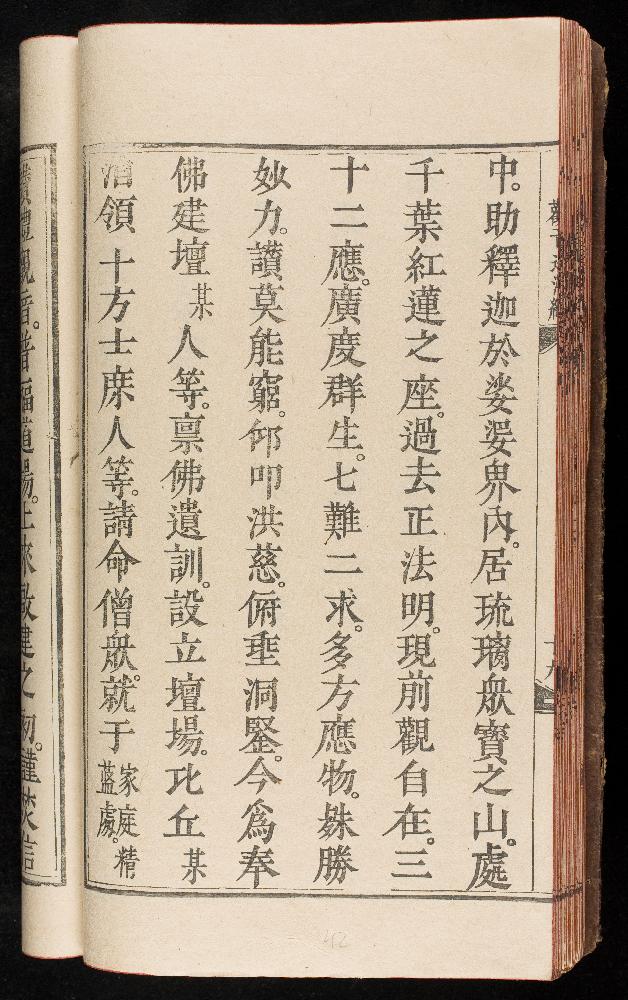 中。助釋迦於娑婆界內。居琉璃眾寶之山。處
千葉紅蓮之座。過去正法明。現前觀自在。三
十二應。廣度群生。七難二求。多方應物。殊勝
妙力。讚莫能窮。仰叩洪慈。俯垂洞鑒。今為奉
佛建壇某人等。禀佛遺訓。設立壇場。比丘某
領十方士庶人等。請命僧眾。就于家庭精藍處。
禮觀音。普福道場。上來啟建之初。謹焚信
十九
42